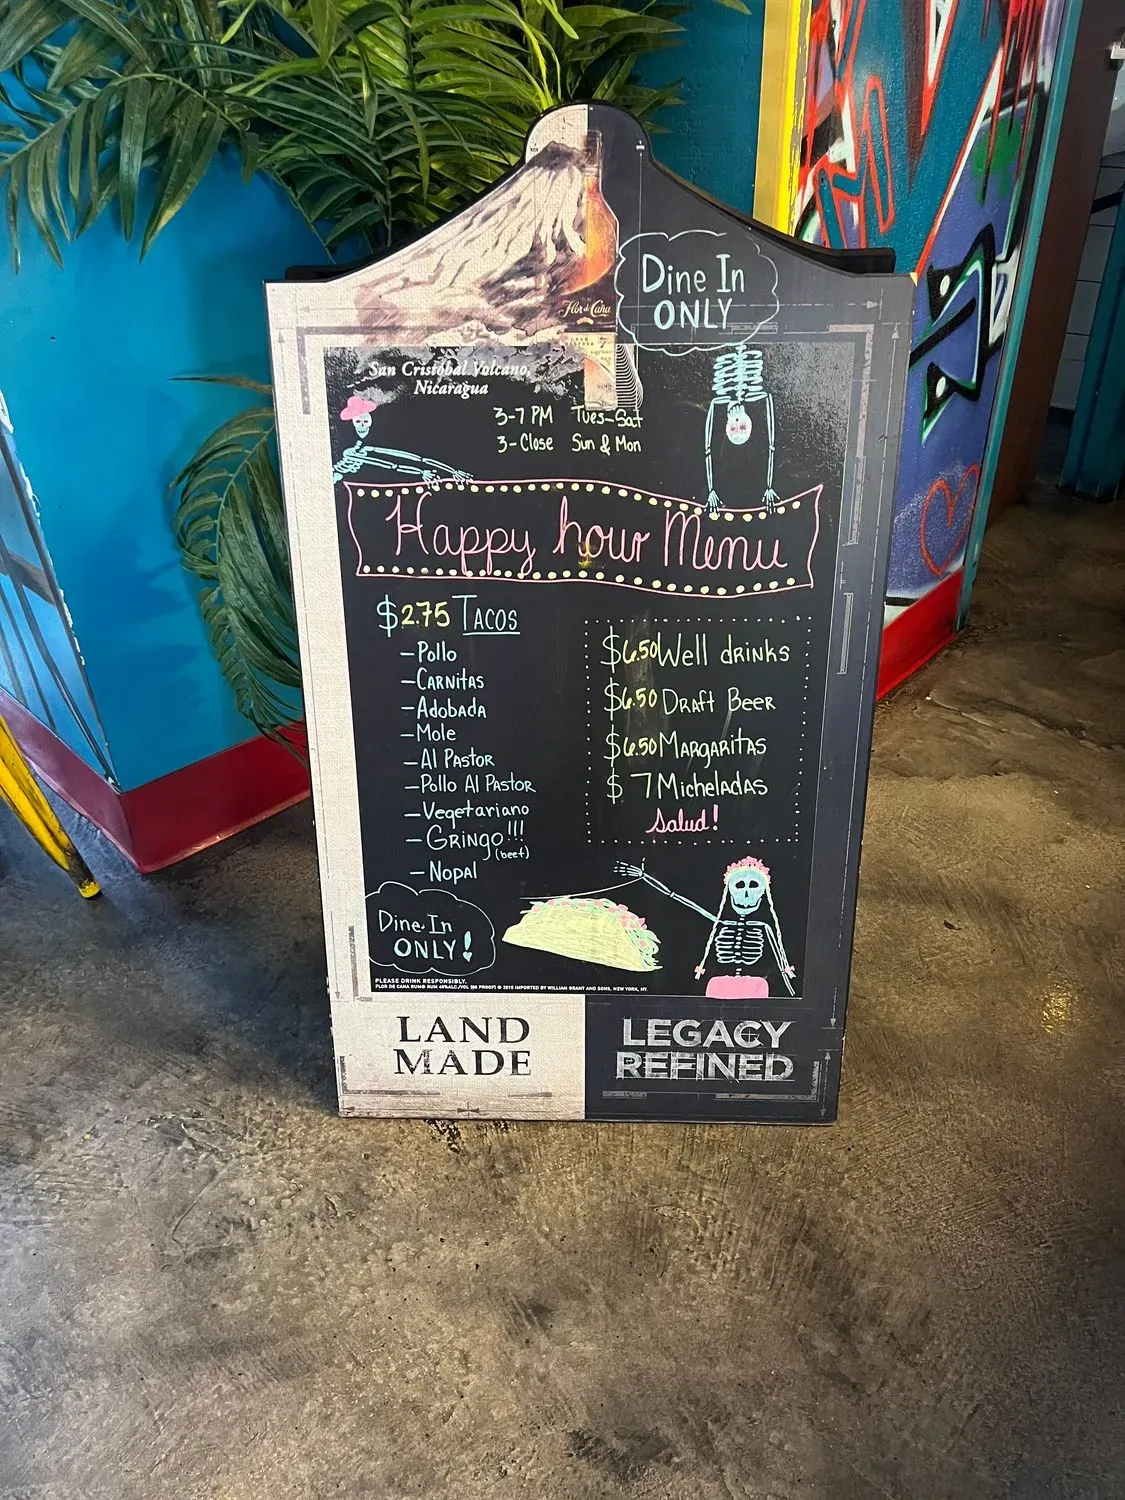 Dine In
ONLY
Flor de Caña
San Cristóbal Volcano,
Nicaragua
3-7 PM Tues-Sat
3-Close Sun & Mon
Happy hour Menu
$2.75 TACOS
-Pollo
-CARNITAS
-Adobada
-Mole
-Al PASTOR
-Pollo Al PASTOR
-Vegetariano
-GRINGO!!!
(beef)
- Nopal
$6.50 Well drinks
$6.50 Draft Beer
$6.50 MARGARITAS
$ 7 Micheladas
Salud!
Dine In
ONLY!
PLEASE DRINK RESPONSIBLY.
FLOR DE CANA RUM® RUM 40%ALC./VOL (80 PROOF) © 2015 IMPORTED BY WILLIAM GRANT AND SONS, NEW YORK, NY.
LAND
MADE
LEGACY
REFINED